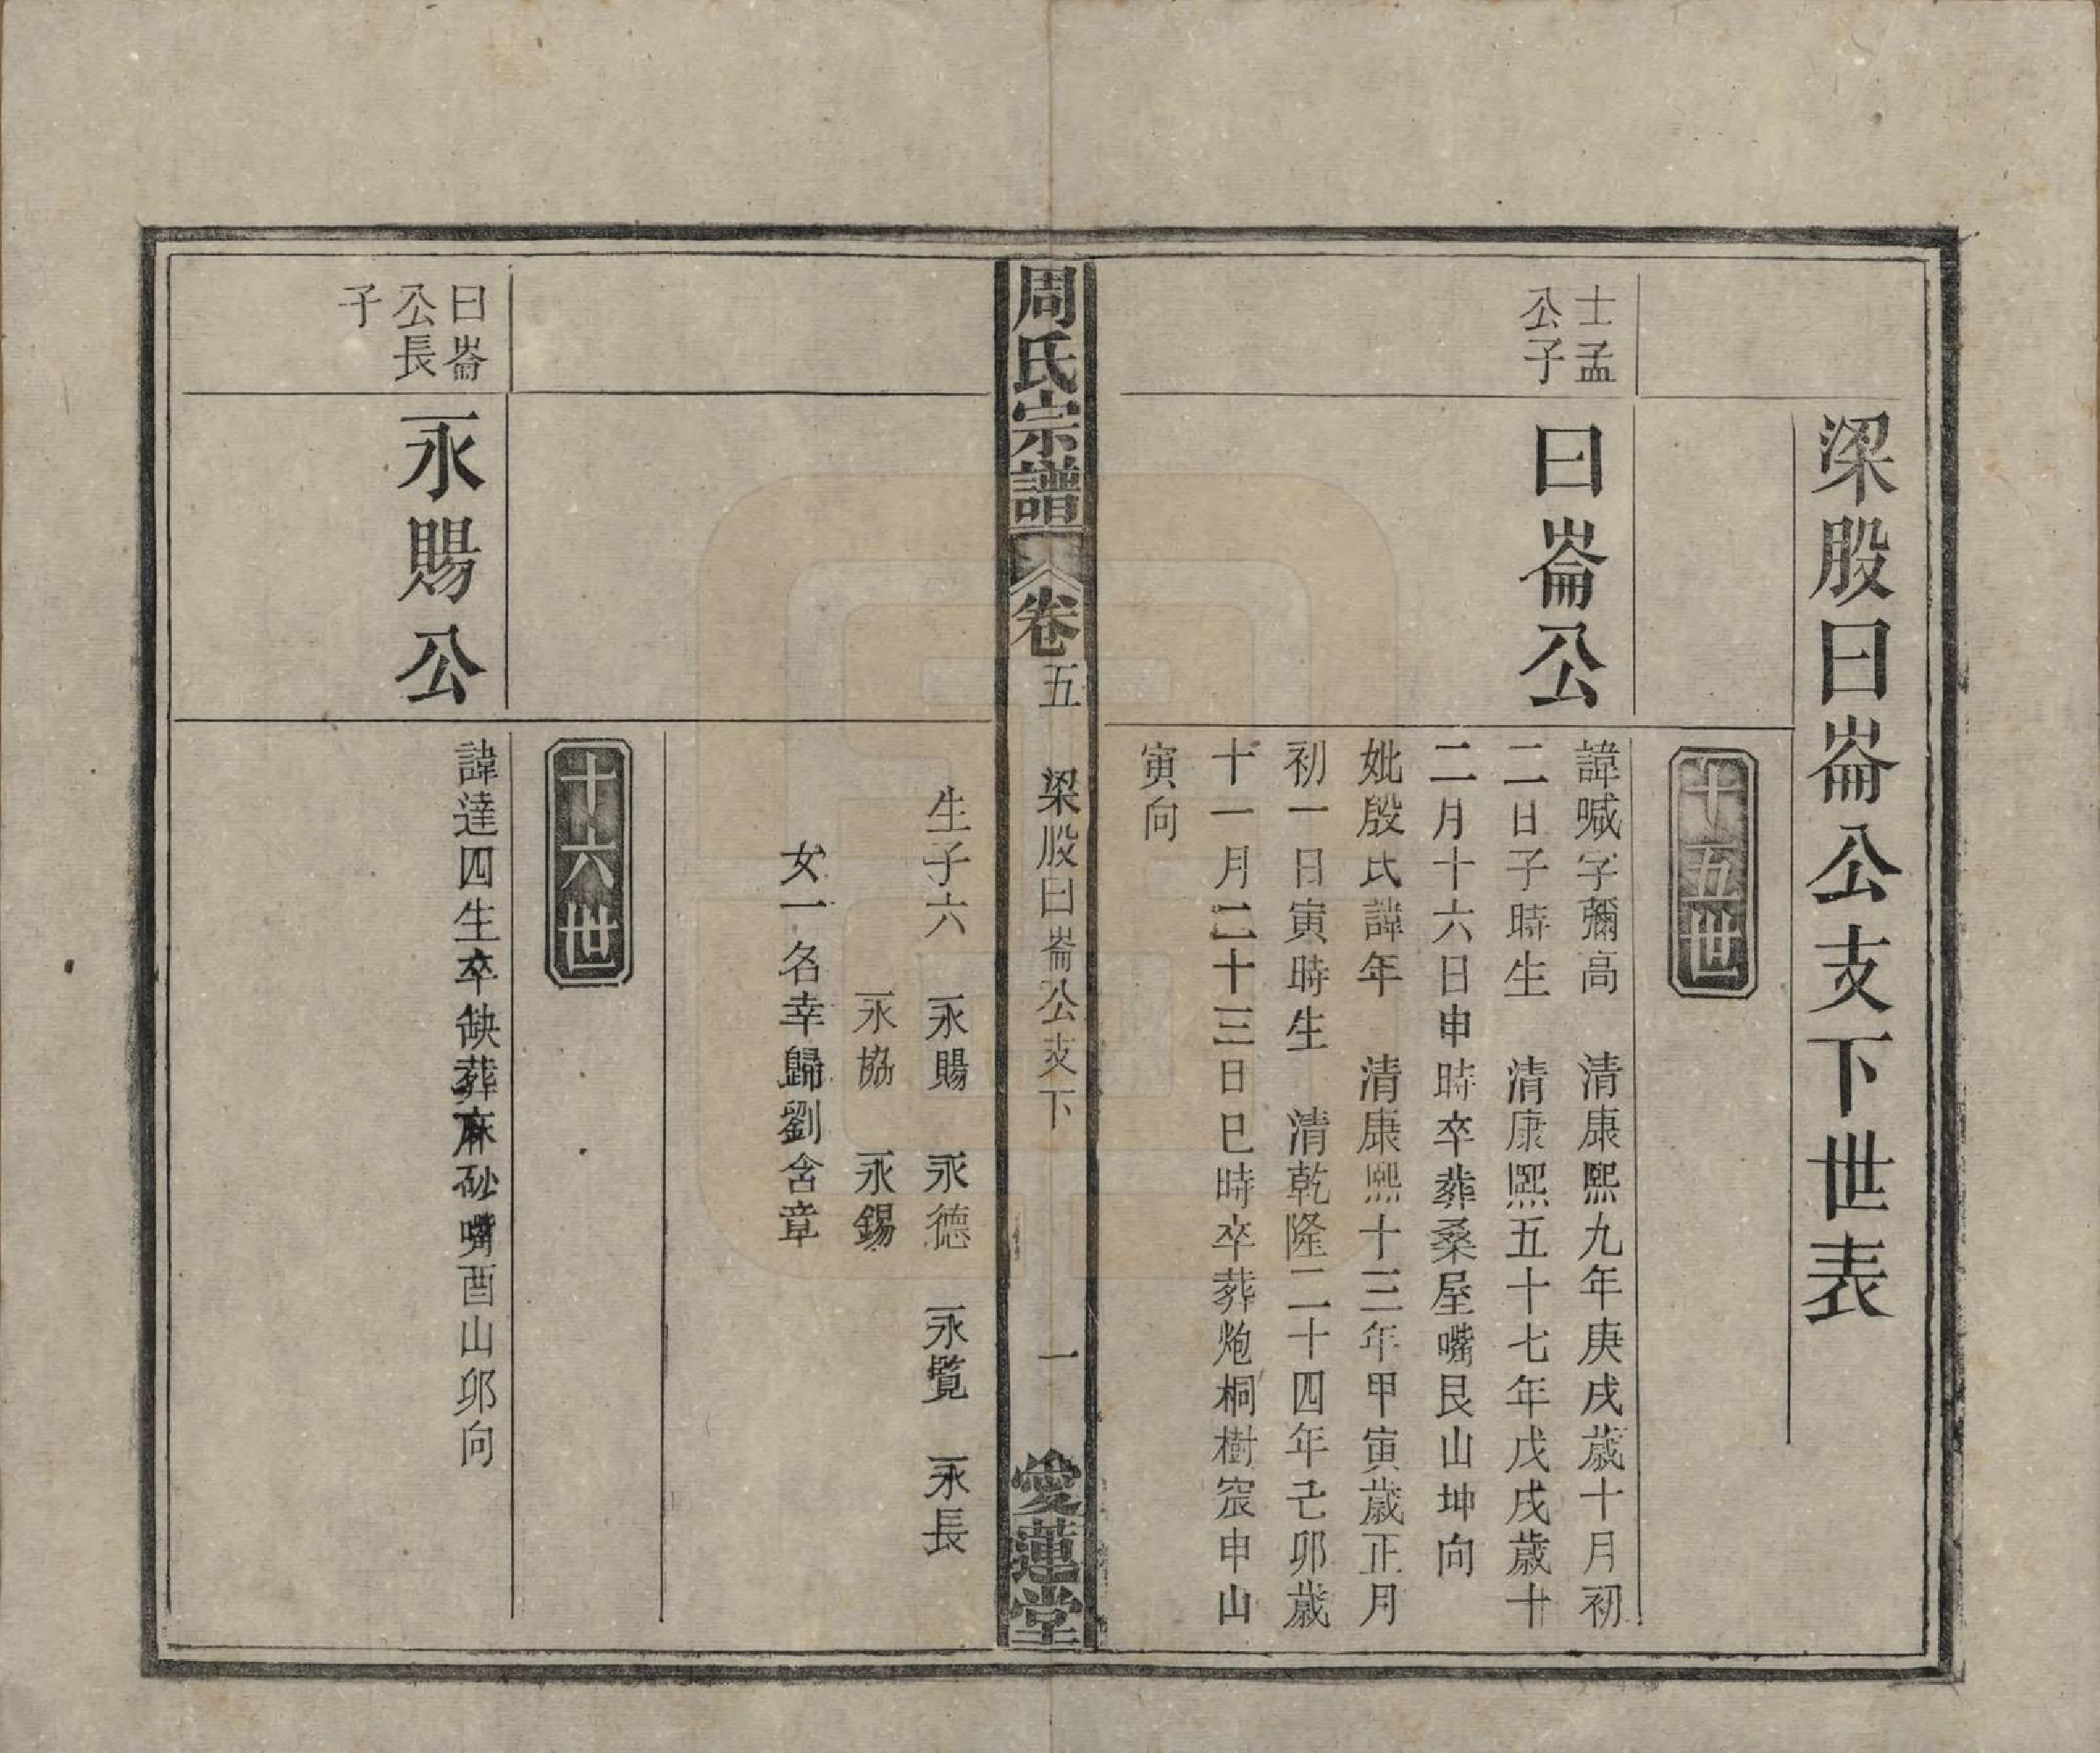 梁股曰崙公支下世表
十五世
士孟
公子
曰崙公
諱喊字彌高　清康熙九年庚戌歲十月初
二日子時生　清康熙五十七年戊戌歲十
二月十六日申時卒葬桑屋嘴艮山坤向
妣殷氏諱年　清康熙十三年甲寅歲正月
初一日寅時生　清乾隆二十四年己卯歲
十一月二十三日巳時卒葬炮桐樹窊申山
寅向
周氏宗譜　卷五　梁股曰崙公支下　一　愛蓮堂
生子六　永賜　永德　永覽　永長
永協　永錫
女一名幸歸劉含章
十六世
曰崙
公長
子
永賜公
諱達四生卒缺葬麻砂嘴酉山卯向